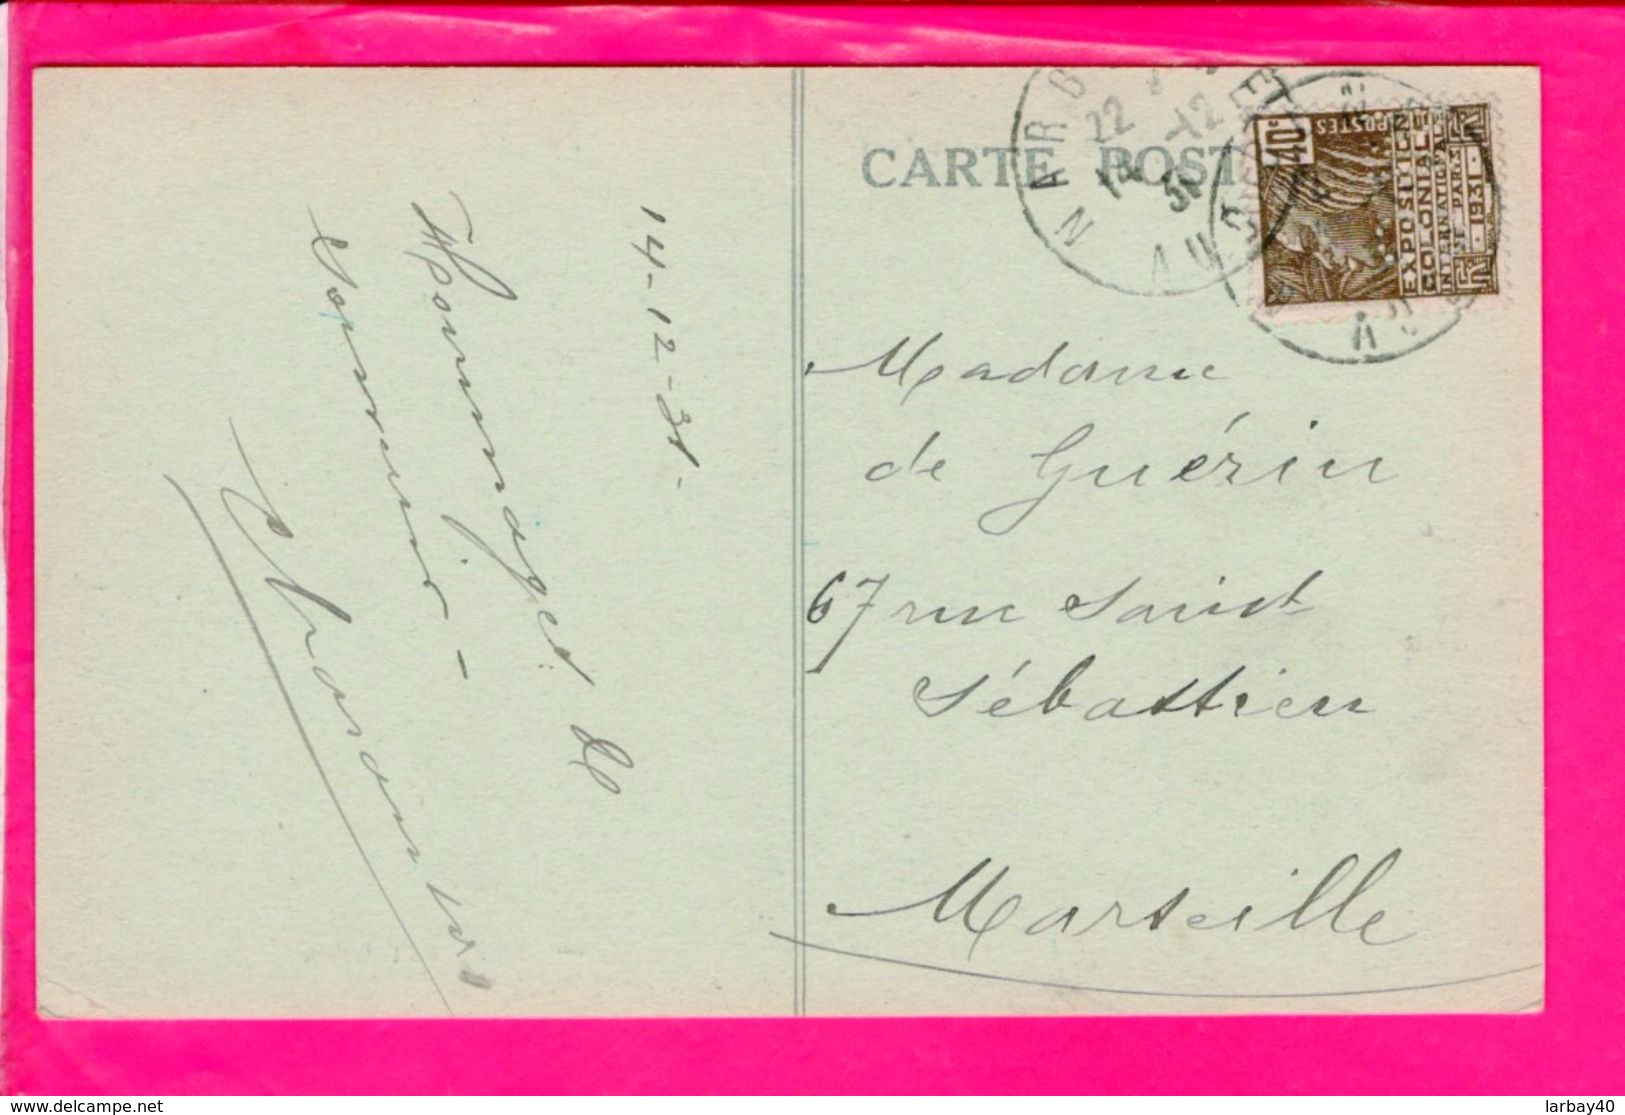 CARTE POST
NARB
22
-12
31
AUDE
40c
POSTES
EXPOSITION
COLONIALE
INTERNATIONALE
PARIS
1931
14-12-31-
Hommages &
souvenir -
Madame
de Guérin
67 rue Saint
Sébastien
Marseille
delcampe.net
larbay40